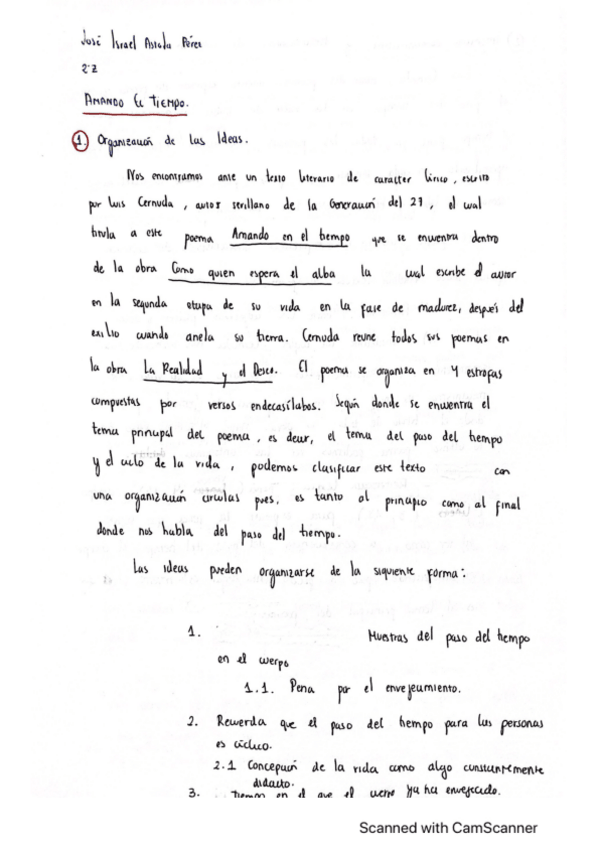 José Israel Pérez
2ºZ
AMANDO EL TIEMPO.
1. Organización de las Ideas.
Nos encontramos ante un texto literario de caracter lírico, escrito
por Luis Cernuda, autor sevillano de la Generación del 27, el cual
titula a este poema Amando en el tiempo que se encuentra dentro
de la obra Como quien espera el alba la cual escribe el autor
en la segunda etapa de su vida en la fase de madurez, después del
exilio cuando anela su tierra. Cernuda reune todos sus poemas en
la obra La Realidad y el Deseo. El poema se organiza en 4 estrofas
compuestas por versos endecasílabos. Según donde se encuentra el
tema principal del poema, es decir, el tema del paso del tiempo
y el ciclo de la vida, podemos clasificar este texto con
una organización circular pues, es tanto al principio como al final
donde nos habla del paso del tiempo.
Las ideas pueden organizarse de la siguiente forma:
1. Muestras del paso del tiempo
en el cuerpo
1.1. Pena por el envejecimiento.
2. Recuerda que el paso del tiempo para las personas
es cíclico.
2.1 Concepción de la vida como algo constantemente
3. Tiempo en el que el ya ha envejecido.
Scanned with CamScanner